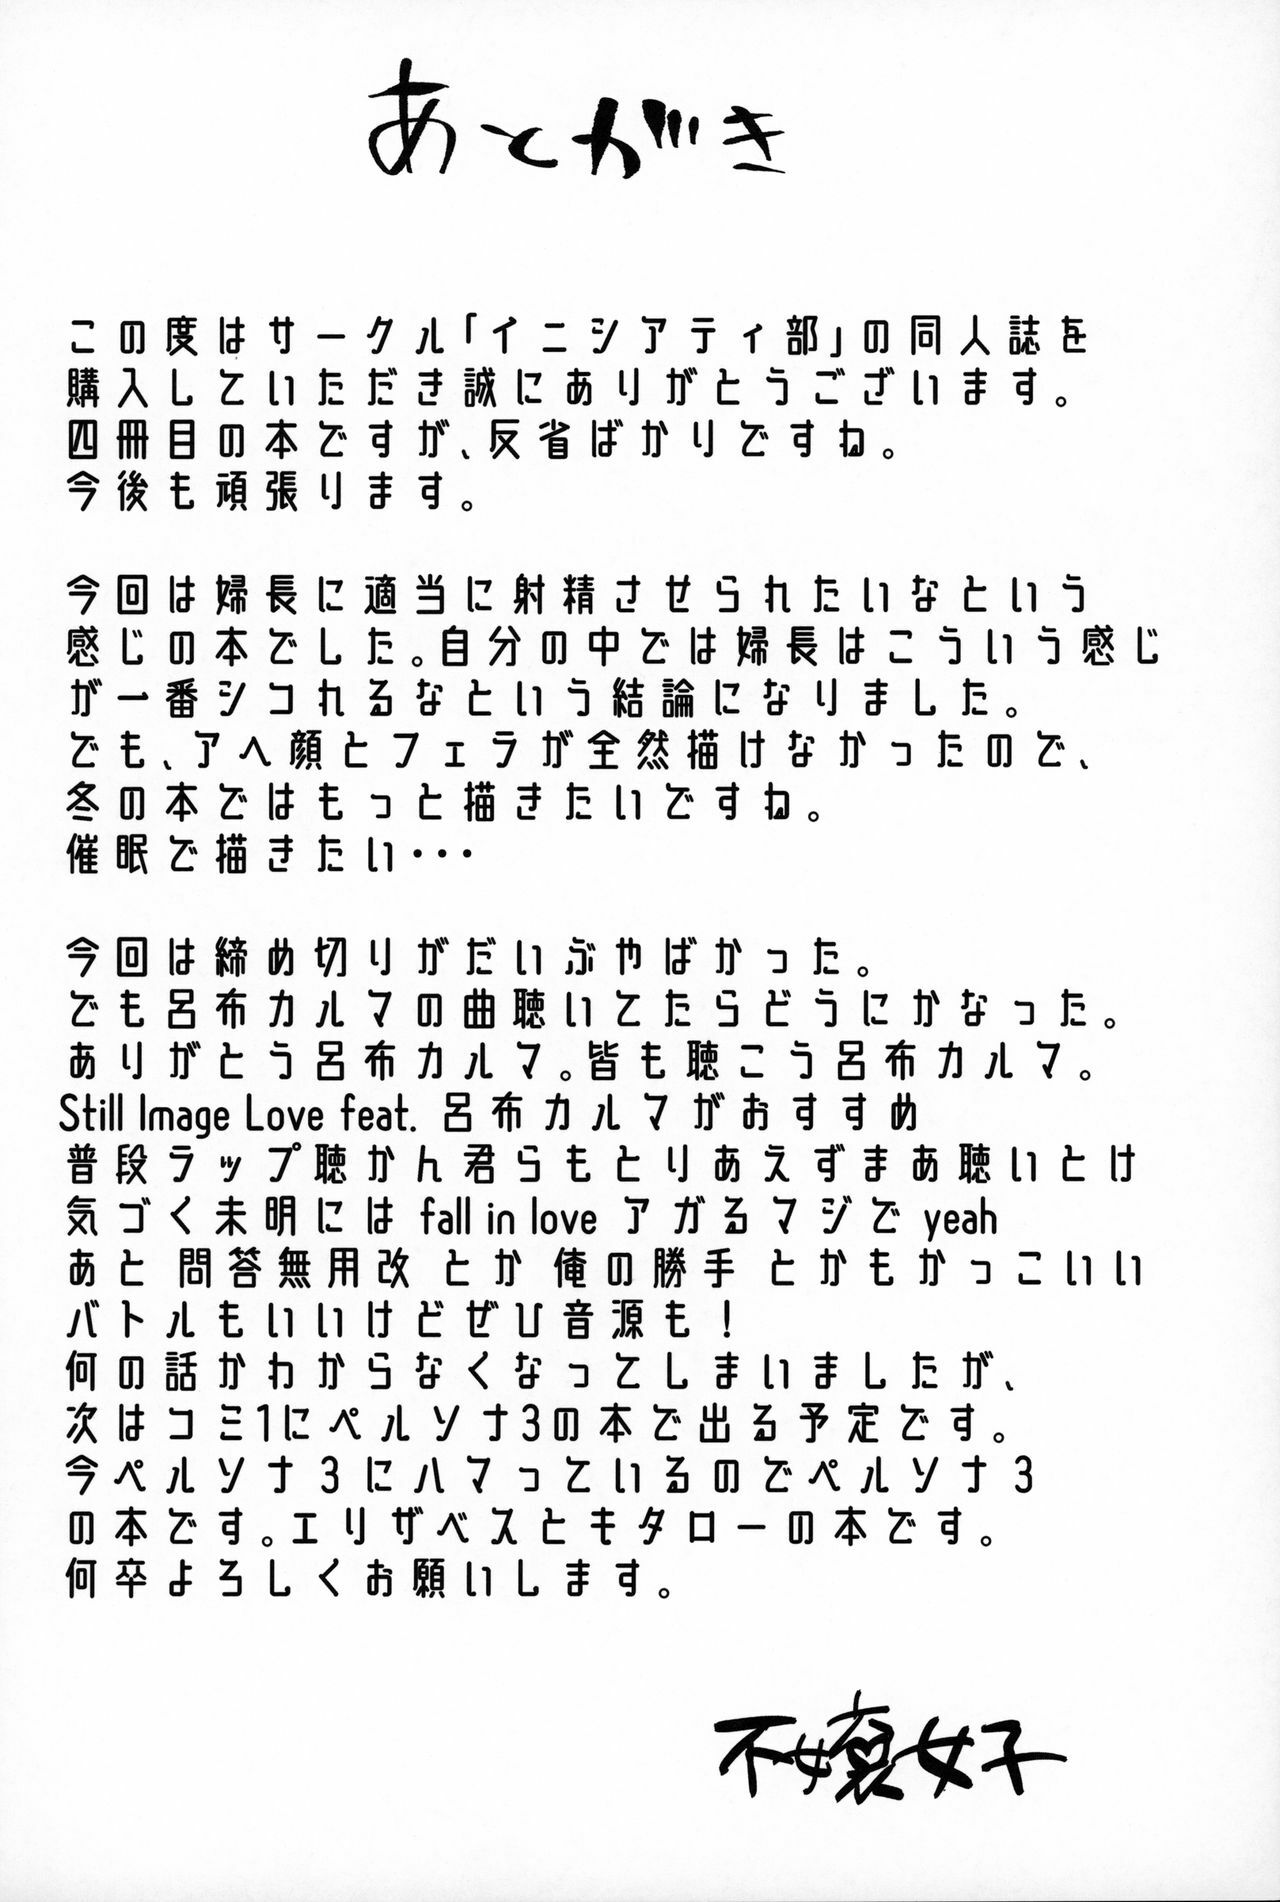 あとがき
この度はサークル「イニシアティ部」の同人誌を
購入していただき誠にありがとうございます。
四冊目の本ですが、反省ばかりですね。
今後も頑張ります。
今回は婦長に適当に射精させられたいなという
感じの本でした。自分の中では婦長はこういう感じ
が一番シコれるなという結論になりました。
でも、アヘ顔とフェラが全然描けなかったので、
冬の本ではもっと描きたいですね。
催眠で描きたい・・・
今回は締め切りがだいぶやばかった。
でも呂布カルマの曲聴いてたらどうにかなった。
ありがとう呂布カルマ。皆も聴こう呂布カルマ。
Still Image Love feat. 呂布カルマがおすすめ
普段ラップ聴かん君らもとりあえずまあ聴いとけ
気づく未明には fall in love アガるマジで yeah
あと 問答無用改 とか 俺の勝手 とかもかっこいい
バトルもいいけどぜひ音源も！
何の話かわからなくなってしまいましたが、
次はコミ1にペルソナ3の本で出る予定です。
今ペルソナ3にハマっているのでペルソナ3
の本です。エリザベスとキタローの本です。
何卒よろしくお願いします。
不嬢女子